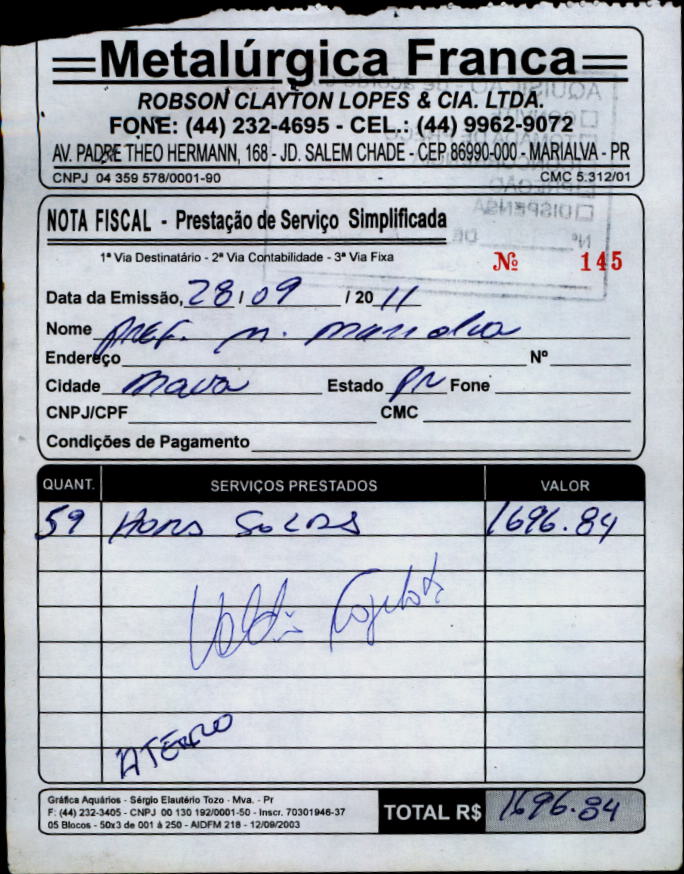 Metalúrgica Franca
ROBSON CLAYTON LOPES & CIA. LTDA.
FONE: (44) 232-4695 - CEL.: (44) 9962-9072
AV. PADRE THEO HERMANN, 168 - JD. SALEM CHADE - CEP 86990-000 - MARIALVA - PR
CNPJ 04 359 578/0001-90 CMC 5.312/01
NOTA FISCAL - Prestação de Serviço Simplificada
1ª Via Destinatário - 2ª Via Contabilidade - 3ª Via Fixa
Nº 145
Data da Emissão, 28 / 09 / 20 11
Nome Pref. m. Marialva
Endereço Nº
Cidade Mava Estado Pr Fone
CNPJ/CPF CMC
Condições de Pagamento
QUANT. SERVIÇOS PRESTADOS VALOR
59 Horas Soldas 1696.84
ATERRO
Gráfica Aquários - Sérgio Elautério Tozo - Mva. - Pr
F: (44) 232-3405 - CNPJ 00 130 192/0001-50 - Inscr. 70301946-37
05 Blocos - 50x3 de 001 à 250 - AIDFM 218 - 12/09/2003
TOTAL R$ 1696.84